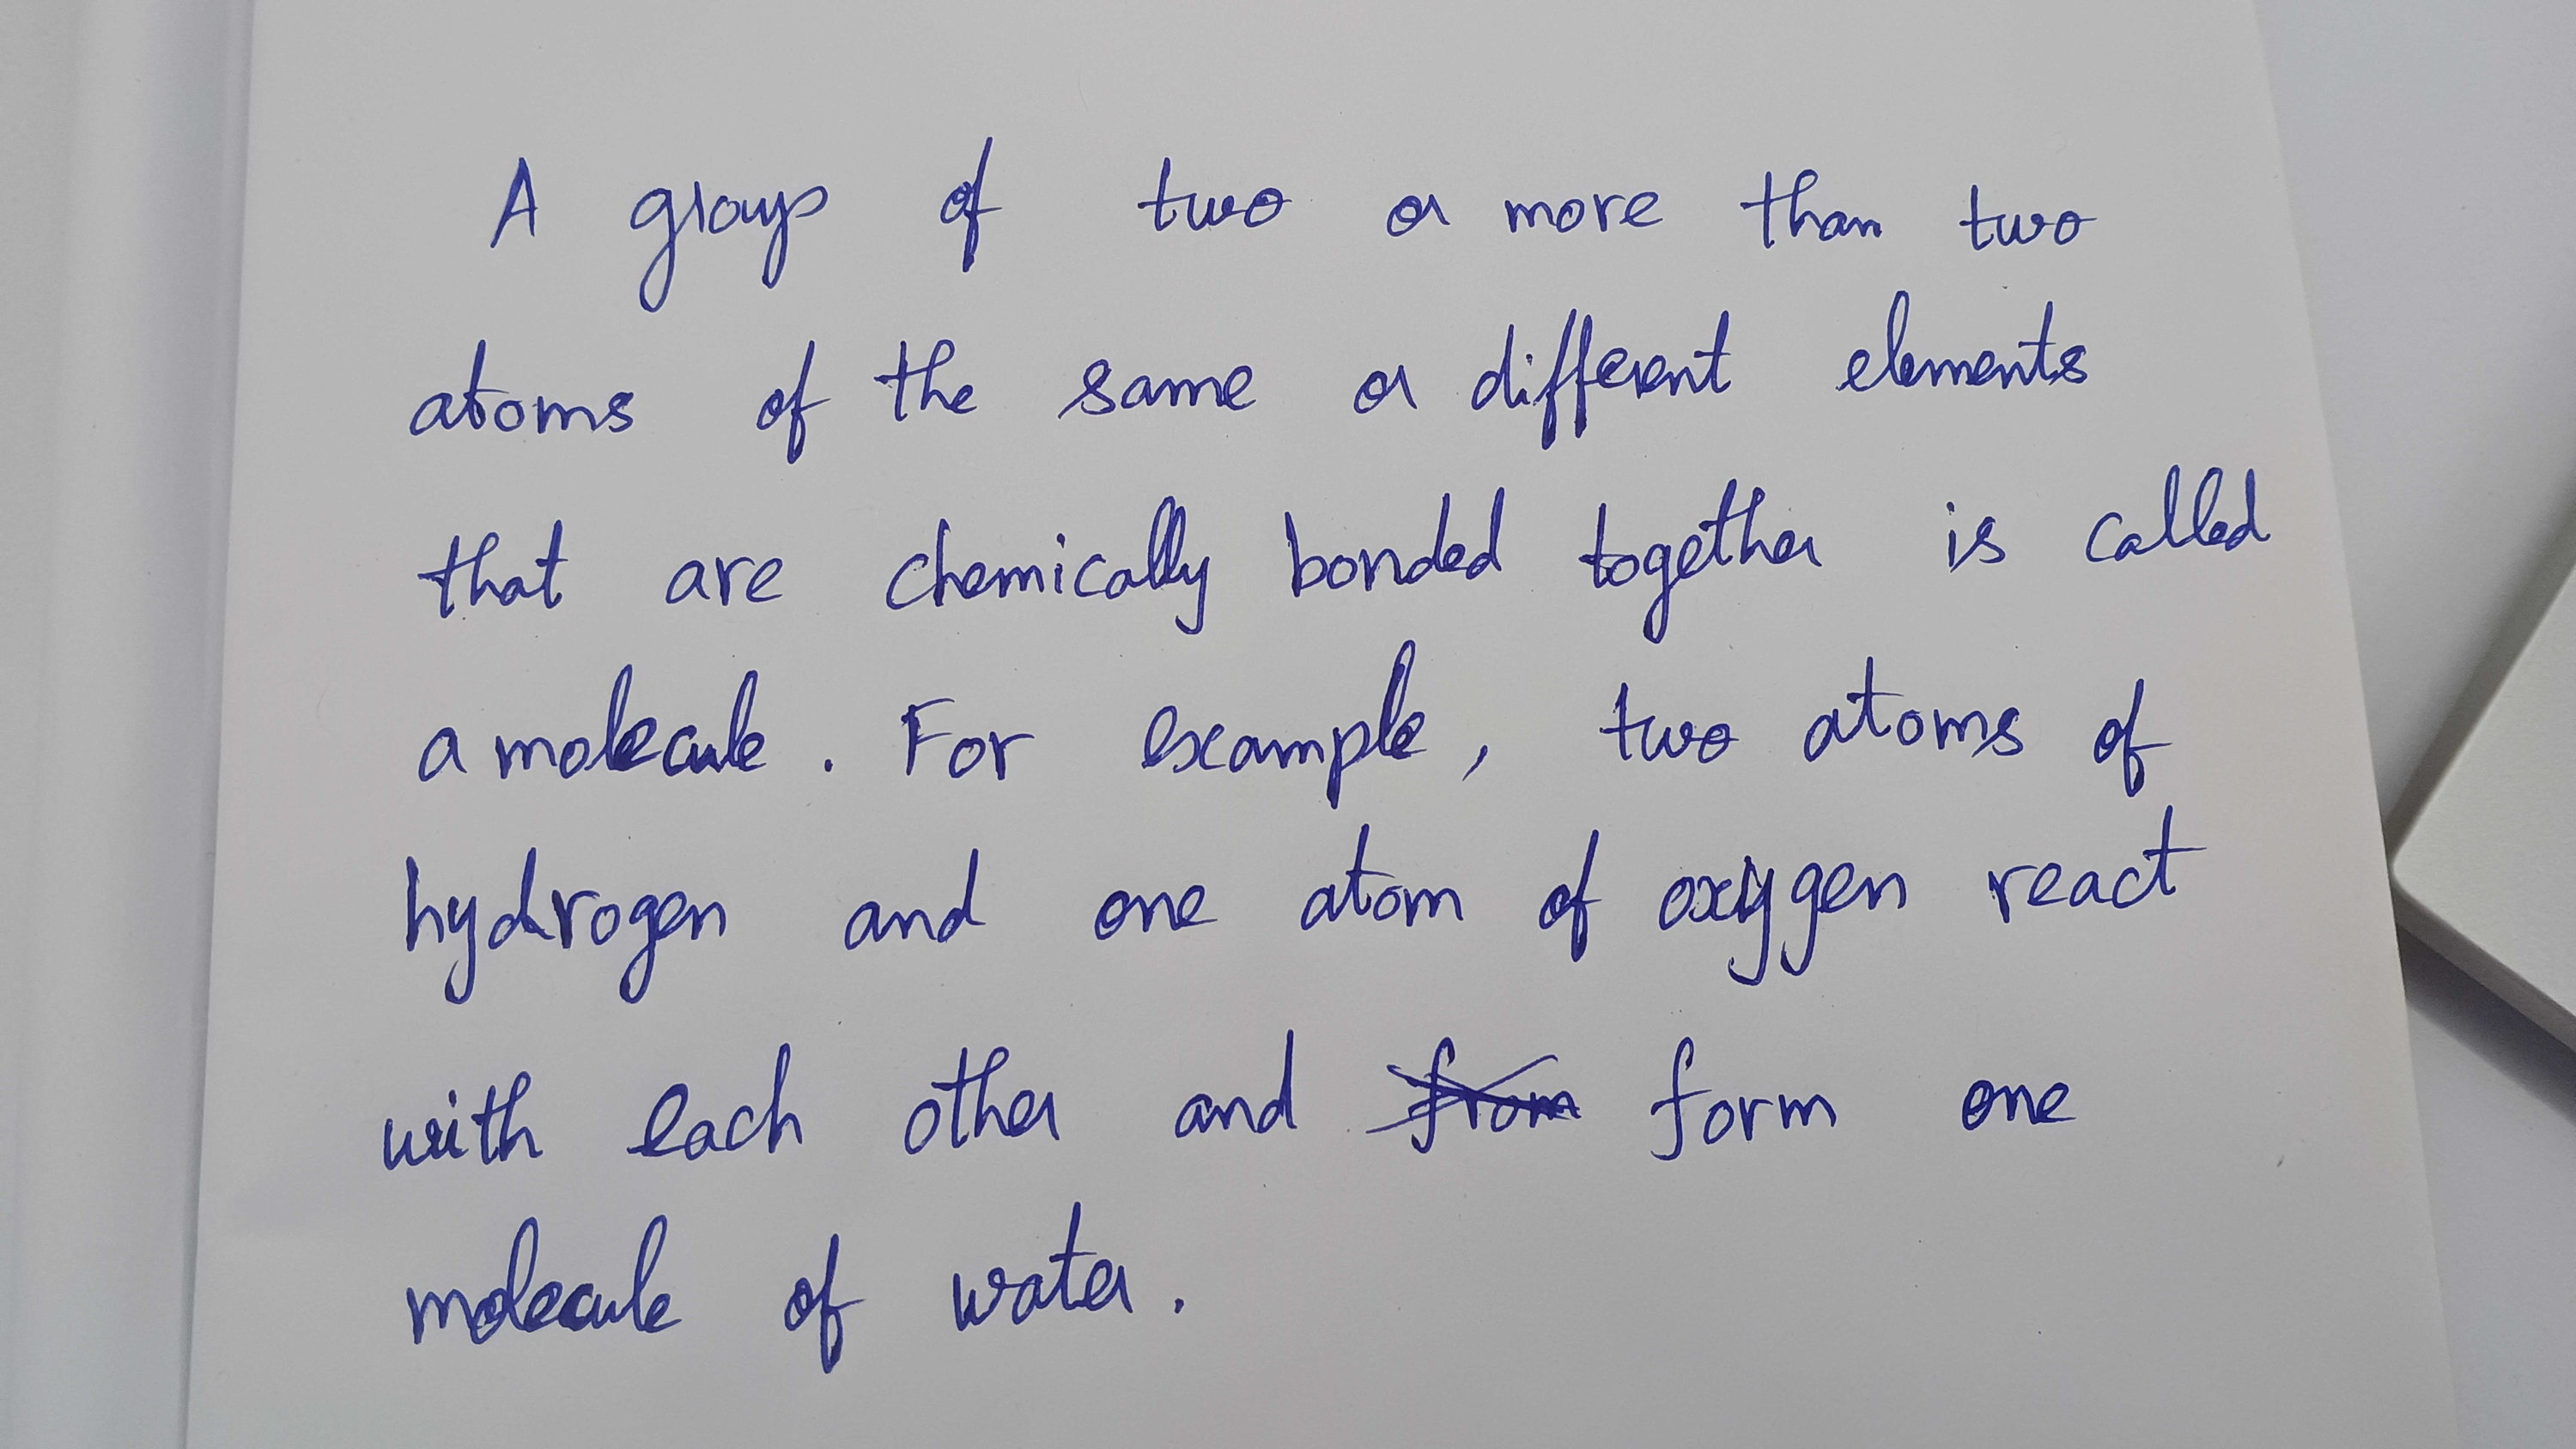 A group of two or more than two
atoms of the same or different elements
that are chemically bonded together is called
a molecule. For example, two atoms of
hydrogen and one atom of oxygen react
with each other and from form one
molecule of water.